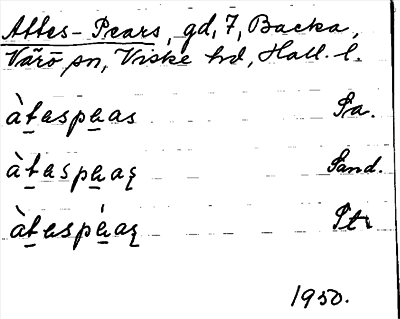 Attes-Pears, gd, 7, Backa,
Värö sn, Viske hd, Hall. l.
àtaspeas Sa.
àtaspeaʂ Sand.
àtaspèaʂ Str
1950.